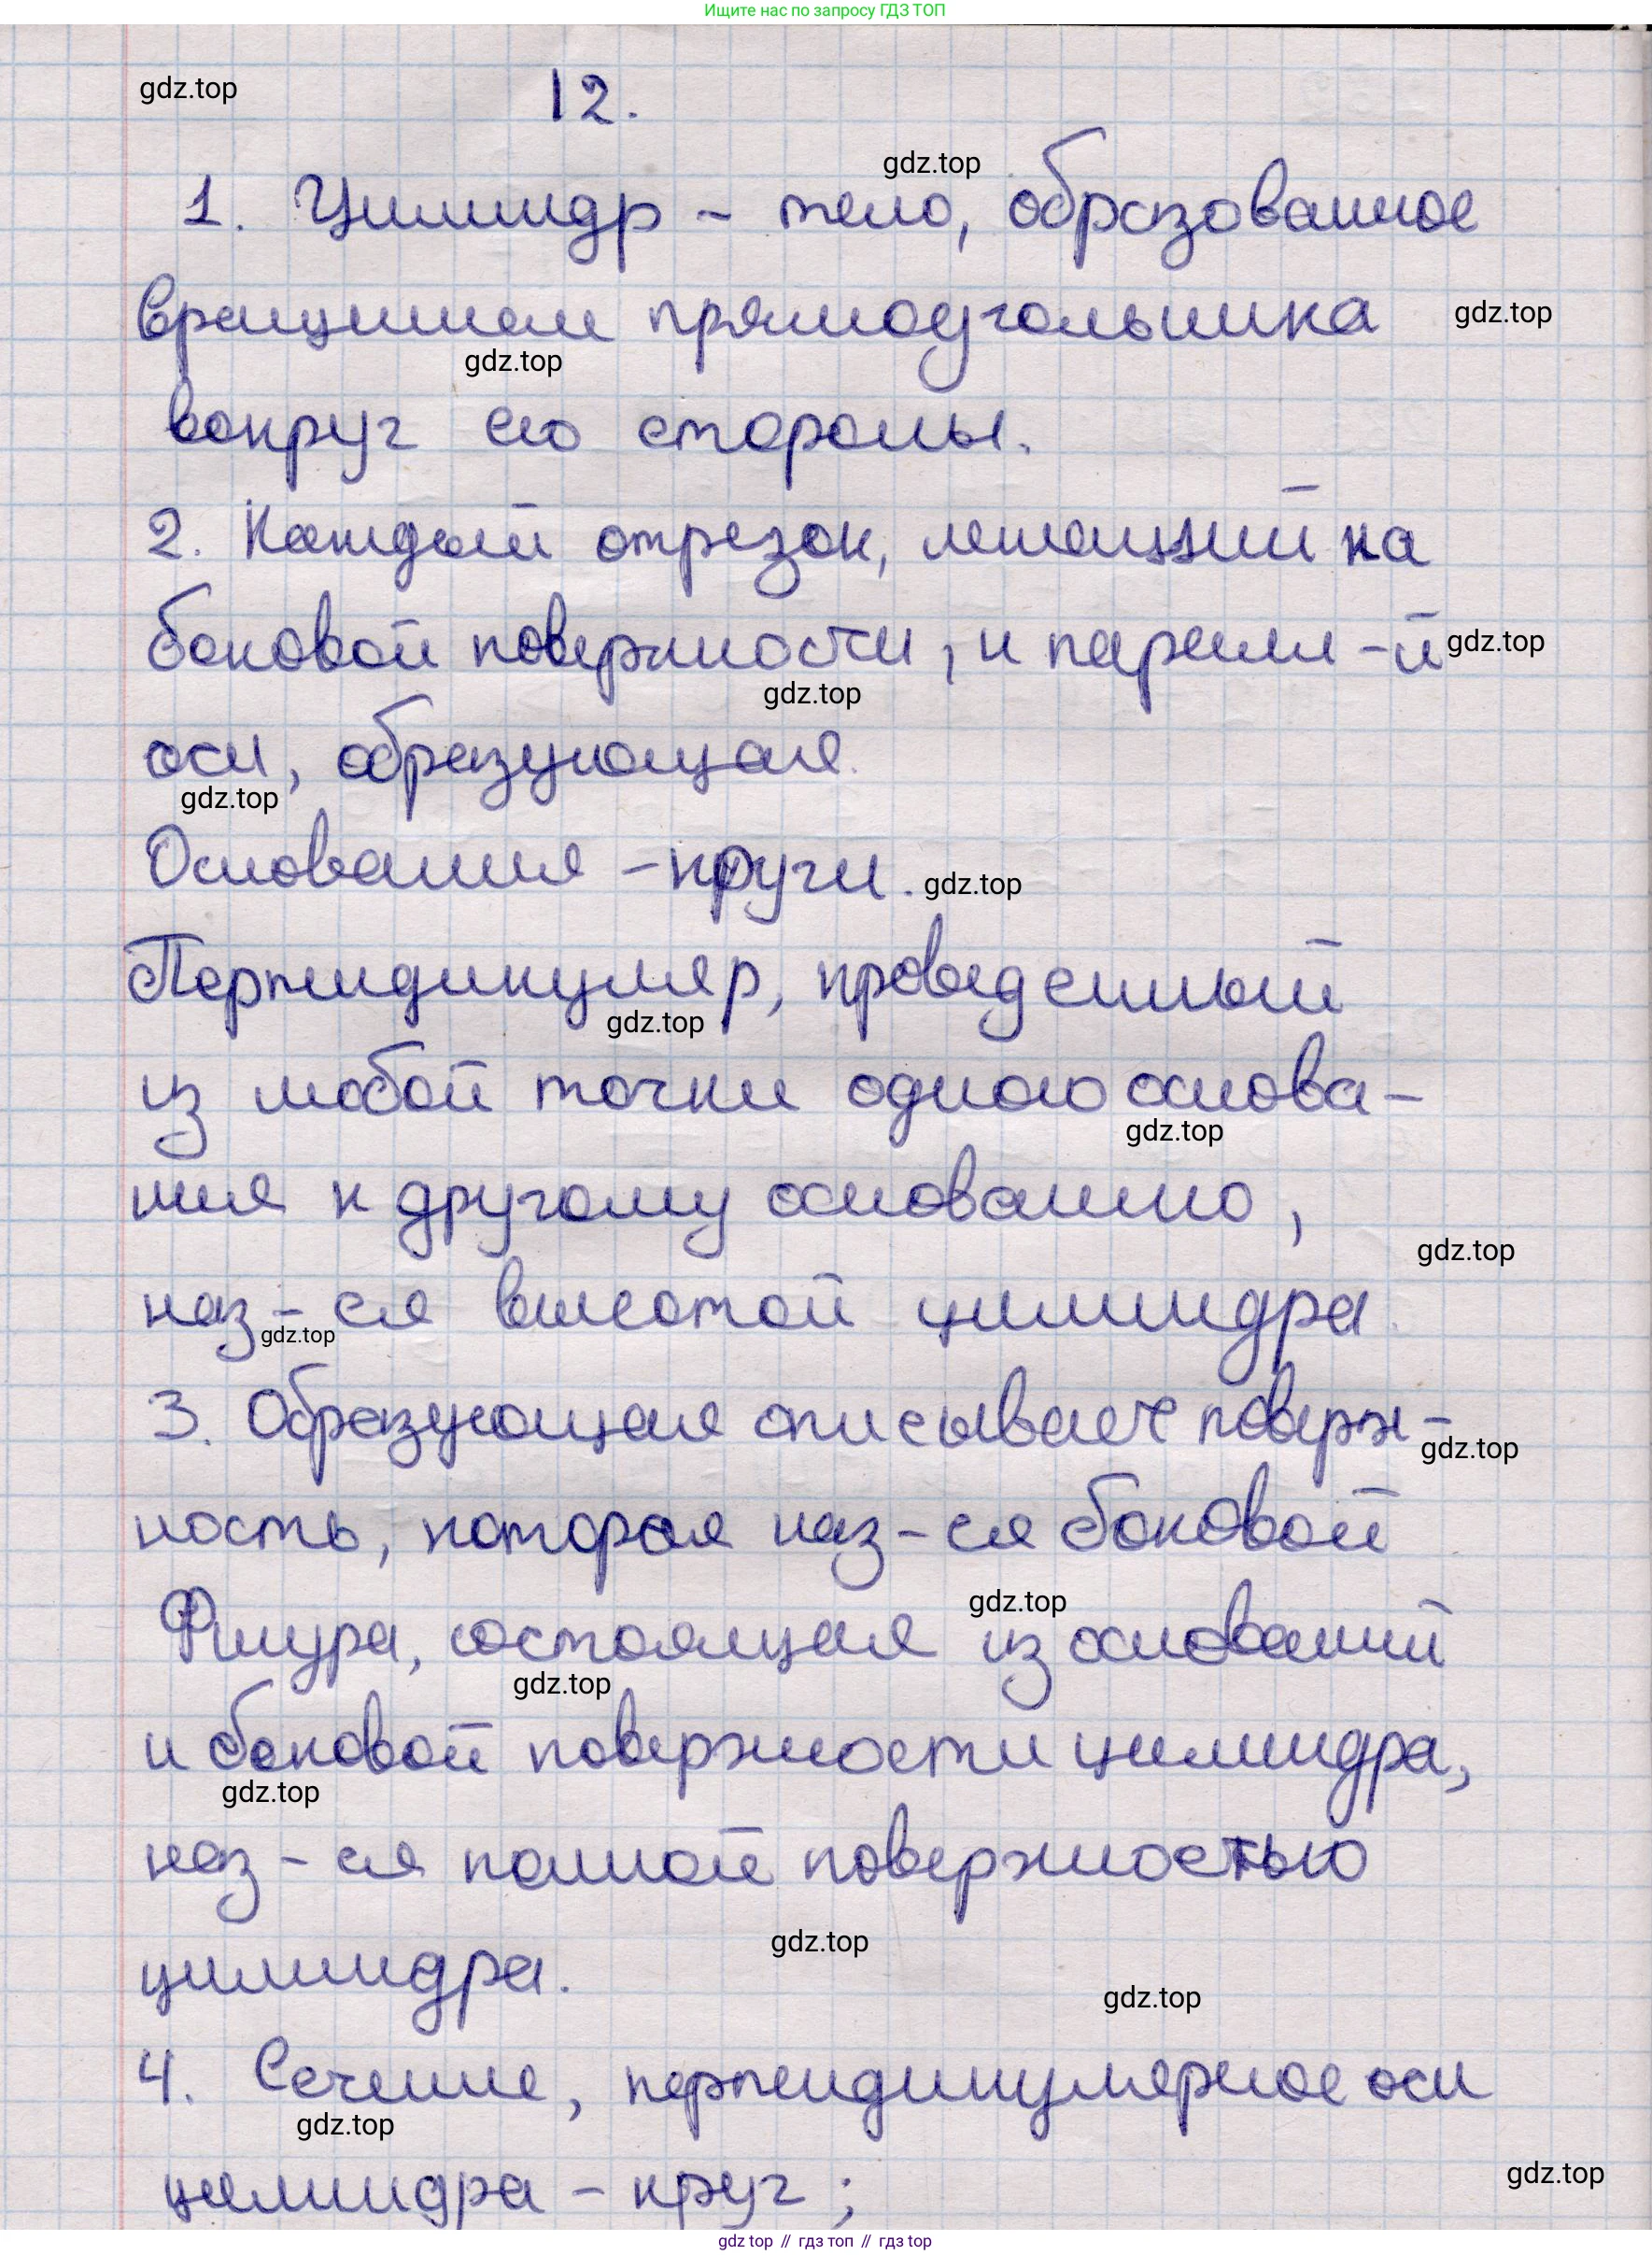 Ищите нас по запросу ГДЗ ТОП
gdz.top
12.
gdz.top
1. Цилиндр - тело, образованное
вращением прямоугольника
gdz.top
gdz.top
вокруг его стороны.
2. Каждый отрезок, лежащий на
боковой поверхности, и паралл-й
gdz.top
gdz.top
оси, образующая.
gdz.top
Основания - круги.
gdz.top
Перпендикуляр, проведенный
gdz.top
из любой точки одного основа-
gdz.top
ния к другому основанию,
gdz.top
наз-ся высотой цилиндра.
gdz.top
3. Образующая описывает поверх-
gdz.top
ность, которая наз-ся боковой
gdz.top
Фигура, состоящая из оснований
gdz.top
и боковой поверхности цилиндра,
gdz.top
наз-ся полной поверхностью
gdz.top
цилиндра.
gdz.top
4. Сечение, перпендикулярное оси
gdz.top
gdz.top
цилиндра - круг;
gdz top // гдз топ // гдз top